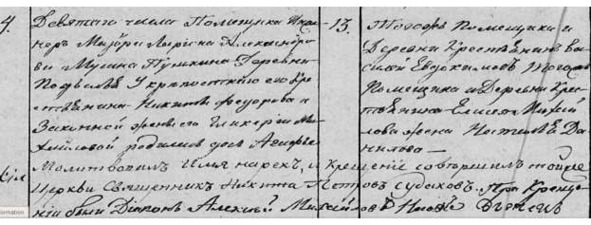 4.
Девятаго числа Помещика Инже-
нер Маiора Лариона Александро-
ва Мусина Пушкина Деревни
Подвелья У крепостнаго его кре-
стьянина Никиты Федорова и
Законной жены его Гликерiи Ми-
хайловой родилась дочь
13.
Тогожъ Помещика и
Деревни Крестьянинъ Ва-
силей Евдокимовъ Тогожъ
Помещика и Деревни Кре-
стьянина Елисея Михай-
лова жена Наталья Да-
нилова
Молитвовалъ Имя нарекъ, и Крещенiе совершилъ тойже
Церкви Священникъ Никита Петровъ Судаковъ. При Креще-
нiи были Дiаконъ Алексей Михайловъ
formation